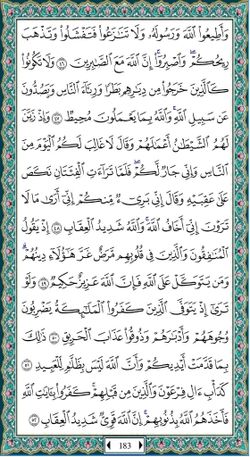 وَأَطِيعُوا۟ ٱللَّهَ وَرَسُولَهُۥ وَلَا تَنَٰزَعُوا۟ فَتَفْشَلُوا۟ وَتَذْهَبَ
رِيحُكُمْ ۖ وَٱصْبِرُوٓا۟ ۚ إِنَّ ٱللَّهَ مَعَ ٱلصَّٰبِرِينَ ٤٦ وَلَا تَكُونُوا۟
كَٱلَّذِينَ خَرَجُوا۟ مِن دِيَٰرِهِم بَطَرًا وَرِئَآءَ ٱلنَّاسِ وَيَصُدُّونَ
عَن سَبِيلِ ٱللَّهِ ۚ وَٱللَّهُ بِمَا يَعْمَلُونَ مُحِيطٌ ٤٧ وَإِذْ زَيَّنَ
لَهُمُ ٱلشَّيْطَٰنُ أَعْمَٰلَهُمْ وَقَالَ لَا غَالِبَ لَكُمُ ٱلْيَوْمَ مِنَ
ٱلنَّاسِ وَإِنِّى جَارٌ لَّكُمْ ۖ فَلَمَّا تَرَآءَتِ ٱلْفِئَتَانِ نَكَصَ
عَلَىٰ عَقِبَيْهِ وَقَالَ إِنِّى بَرِىٓءٌ مِّنكُمْ إِنِّىٓ أَرَىٰ مَا لَا
تَرَوْنَ إِنِّىٓ أَخَافُ ٱللَّهَ ۚ وَٱللَّهُ شَدِيدُ ٱلْعِقَابِ ٤٨ إِذْ يَقُولُ
ٱلْمُنَٰفِقُونَ وَٱلَّذِينَ فِى قُلُوبِهِم مَّرَضٌ غَرَّ هَٰٓؤُلَآءِ دِينُهُمْ ۗ
وَمَن يَتَوَكَّلْ عَلَى ٱللَّهِ فَإِنَّ ٱللَّهَ عَزِيزٌ حَكِيمٌ ٤٩ وَلَوْ
تَرَىٰٓ إِذْ يَتَوَفَّى ٱلَّذِينَ كَفَرُوا۟ ۙ ٱلْمَلَٰٓئِكَةُ يَضْرِبُونَ
وُجُوهَهُمْ وَأَدْبَٰرَهُمْ وَذُوقُوا۟ عَذَابَ ٱلْحَرِيقِ ٥٠ ذَٰلِكَ
بِمَا قَدَّمَتْ أَيْدِيكُمْ وَأَنَّ ٱللَّهَ لَيْسَ بِظَلَّٰمٍ لِّلْعَبِيدِ ٥١
كَدَأْبِ ءَالِ فِرْعَوْنَ ۙ وَٱلَّذِينَ مِن قَبْلِهِمْ ۚ كَفَرُوا۟ بِـَٔايَٰتِ ٱللَّهِ
فَأَخَذَهُمُ ٱللَّهُ بِذُنُوبِهِمْ ۗ إِنَّ ٱللَّهَ قَوِىٌّ شَدِيدُ ٱلْعِقَابِ ٥٢
183